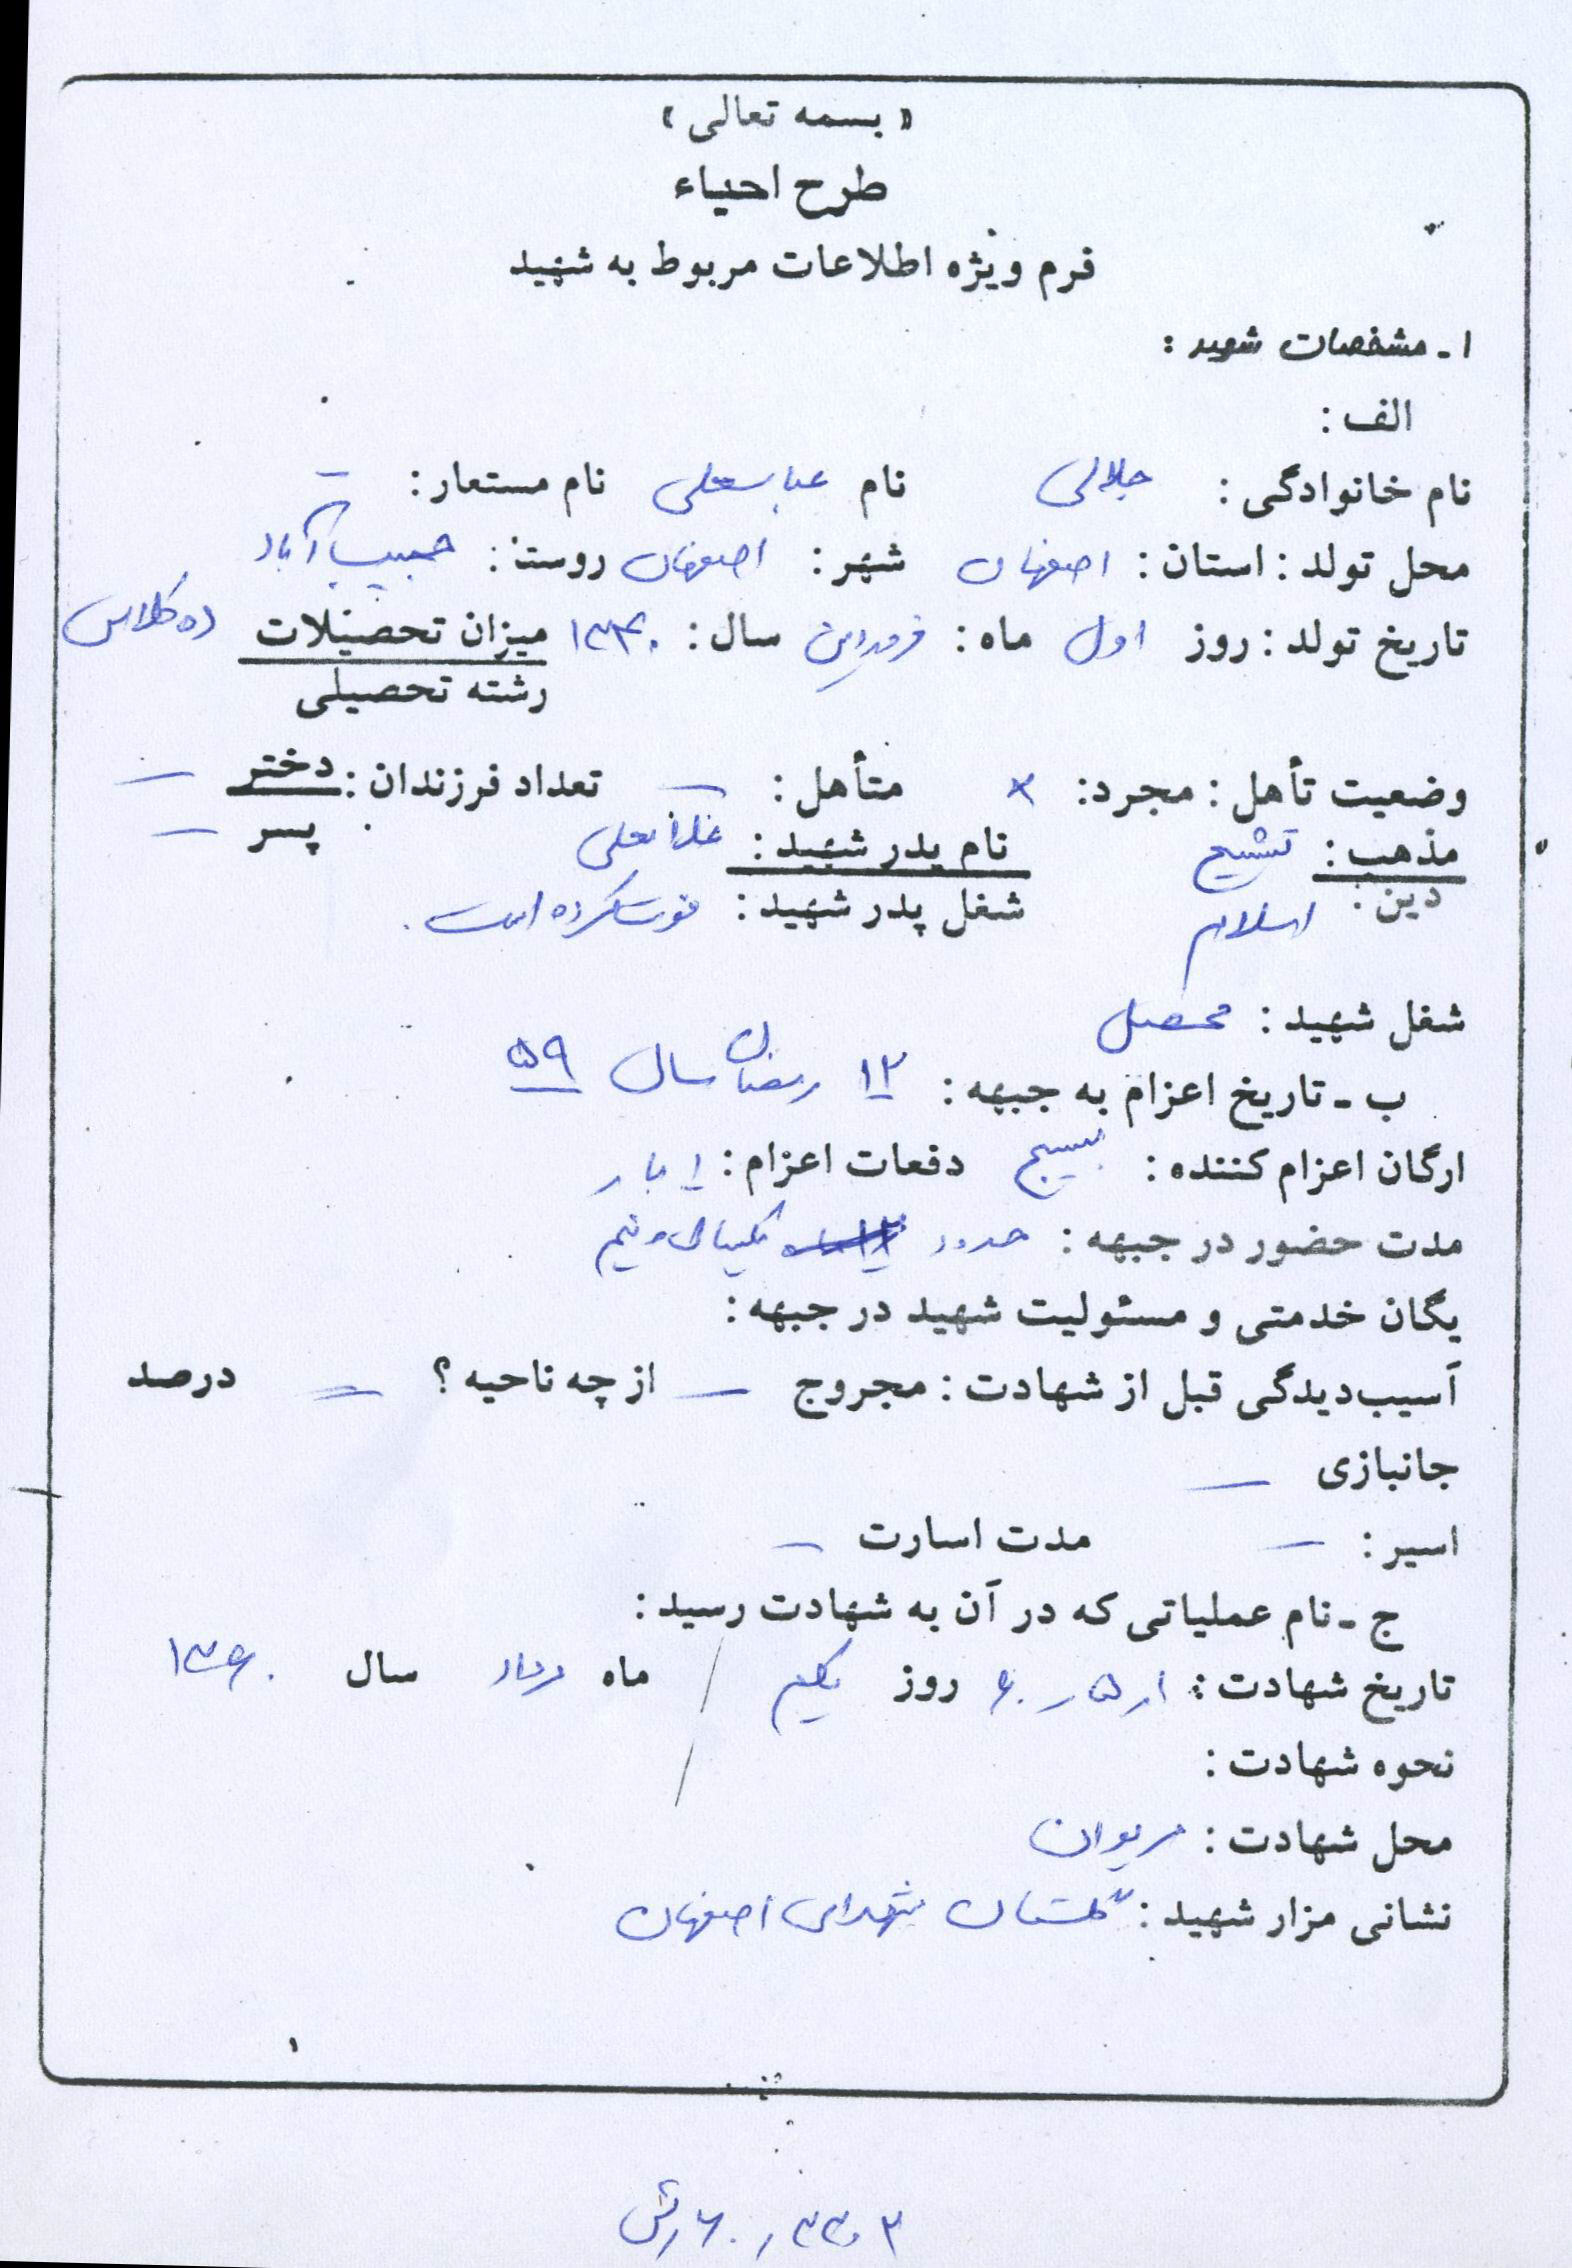 « بسمه تعالی »
طرح احیاء
فرم ویژه اطلاعات مربوط به شهید
۱ - مشخصات شهید :
الف :
نام خانوادگی : جلالی نام عباسعلی نام مستعار : -
محل تولد : استان : اصفهان شهر : اصفهان روستا : حبیب آباد
تاریخ تولد : روز اول ماه : فروردین سال : ۱۳۴۰ میزان تحصیلات ده کلاس
رشته تحصیلی
وضعیت تأهل : مجرد : × متأهل : - تعداد فرزندان : دختر -
پسر -
مذهب : تشیع نام پدر شهید :
دین : اسلام شغل پدر شهید : فوت کرده است .
شغل شهید : محصل
ب - تاریخ اعزام به جبهه : ۱۲ رمضان سال ۵۹
ارگان اعزام کننده : بسیج دفعات اعزام : ۱ بار
مدت حضور در جبهه : حدود یکسال و نیم
یگان خدمتی و مسئولیت شهید در جبهه :
آسیب دیدگی قبل از شهادت : مجروح - از چه ناحیه ؟ - درصد
جانبازی -
اسیر : - مدت اسارت -
ج - نام عملیاتی که در آن به شهادت رسید :
تاریخ شهادت : ۱ر۵ر۶۰ روز یکم / ماه مرداد سال ۱۳۶۰
نحوه شهادت :
محل شهادت : مریوان
نشانی مزار شهید : گلستان شهدای اصفهان
۱